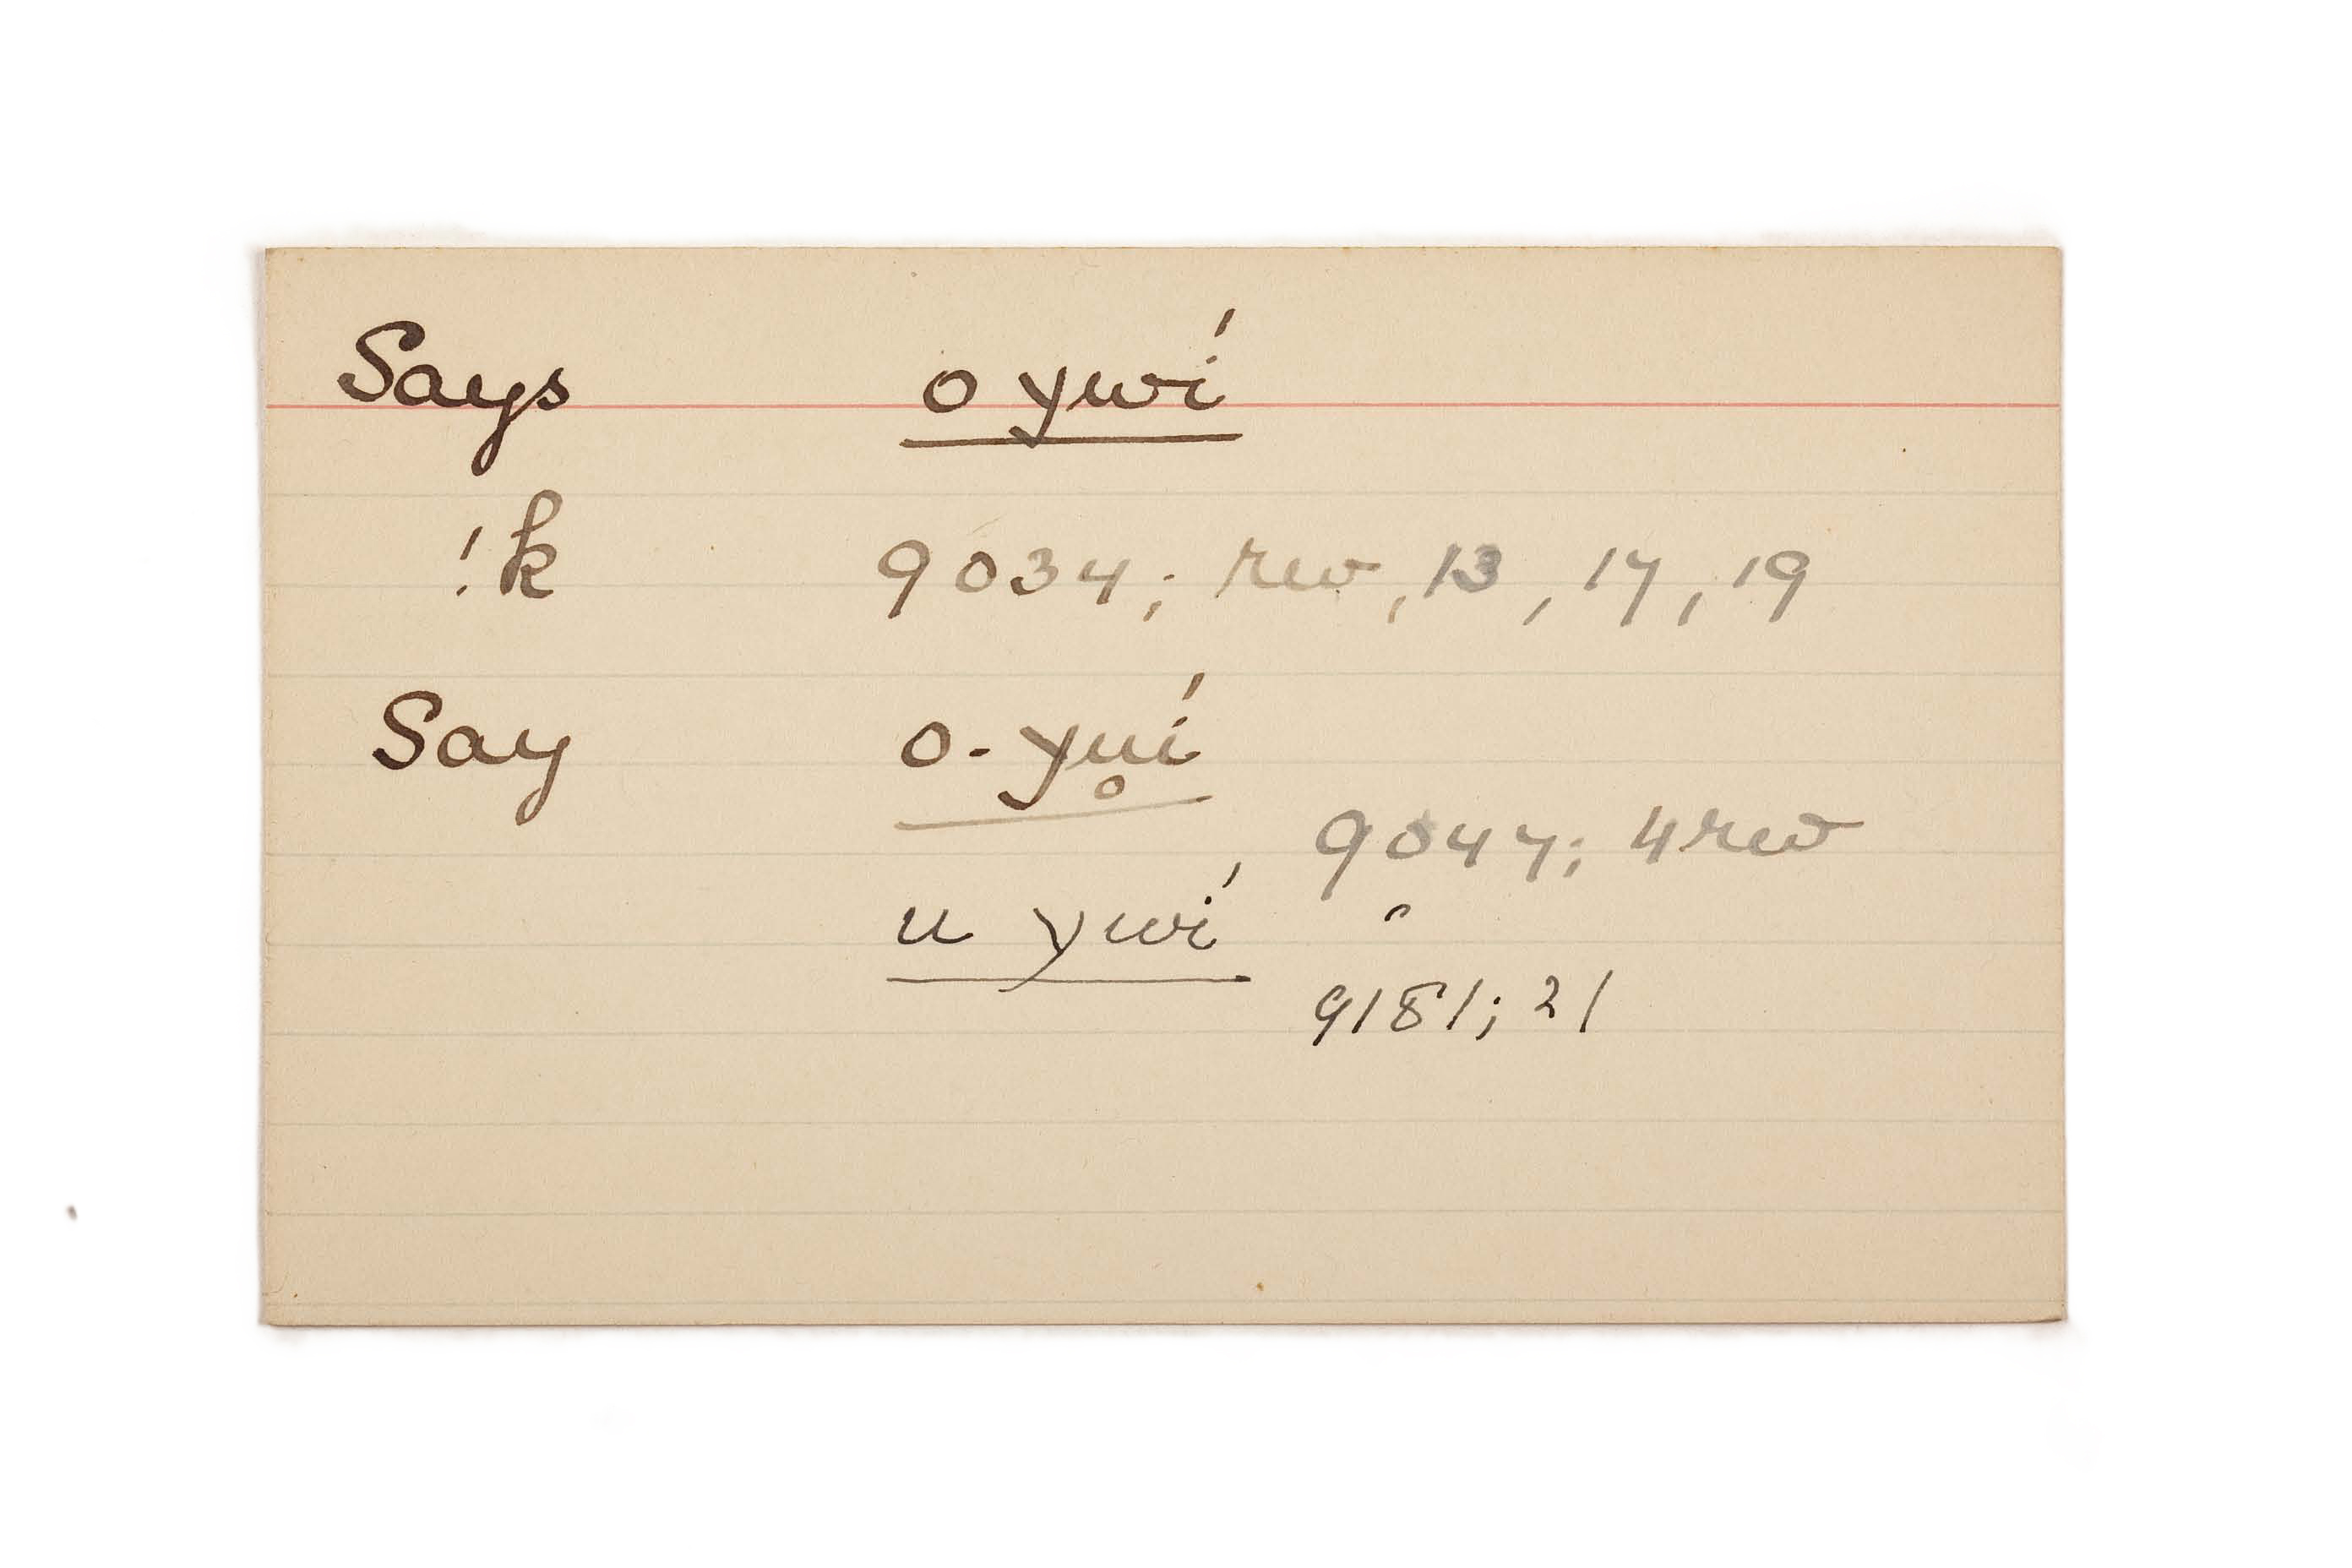 Says o ywí
!k 9034; rev, 13, 17, 19
Say o-yu̥í
9047; 4 rev
u ywí "
9181; 21